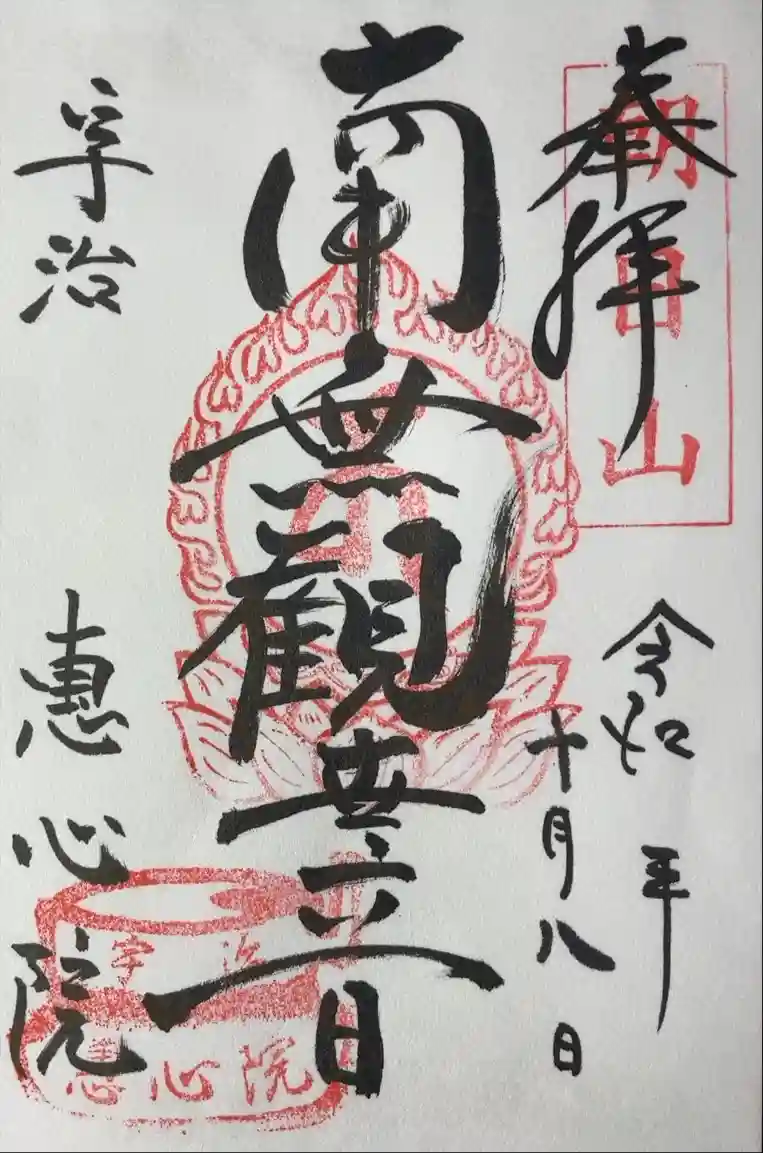 奉拝
朝日山
令和 年
十月八日
南無觀世音
宇治
惠心院
宇治
恵心院